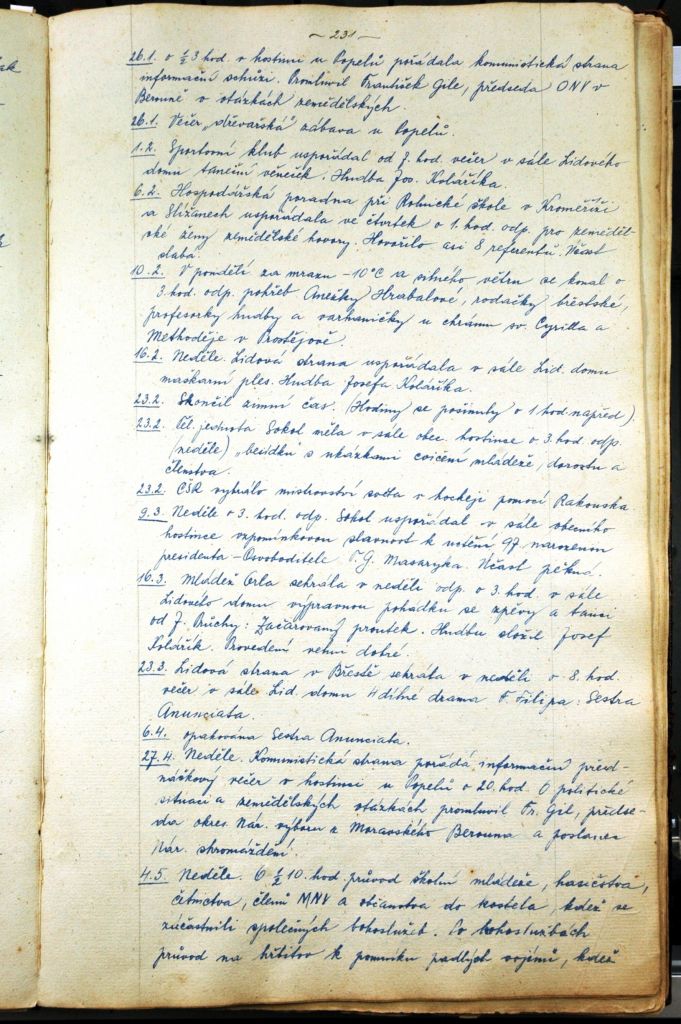 ~ 231 ~
26.1. o ½ 3 hod. v hostinci u Popelů pořádala komunistická strana
informační schůzi. Promluvil František Gile, předseda ONV v
Berouně o otázkách zemědělských.
26.1. Večer „dřevařská" zábava u Popelů.
1.2. Sportovní klub uspořádal od 7. hod. večer v sále Lidového
domu taneční věneček. Hudba Jos. Koláříka.
6.2. Hospodářská poradna při Rolnické škole v Kroměříži
a Slížanech uspořádala ve čtvrtek o 1. hod. odp. pro zeměděl-
ské ženy zemědělské hovory. Hovořilo asi 8 referentů. Účast
slabá.
10.2. V pondělí za mrazu -10°C a silného větru se konal o
3. hod. odp. pohřeb Anežky Hrabalové, rodačky břestské,
profesorky hudby a varhaničky u chrámu sv. Cyrilla a
Methoděje v Prostějově.
16.2. Neděle. Lidová strana uspořádala v sále Lid. domu
maškarní ples. Hudba Josefa Koláříka.
23.2. Skončil zimní čas. (Hodiny se pošinuly o 1 hod. napřed)
23.2. Těl. jednota Sokol měla v sále obec. hostince o 3. hod odp.
(neděle) „besídku s ukázkami cvičení mládeže, dorostu a
členstva.
23.2. ČSR vyhrálo mistrovství světa v hockeji pomocí Rakouska.
9.3. Neděle o 3. hod. odp. Sokol uspořádal v sále obecního
hostince vzpomínkovou slavnost k uctění 97. narozenin
presidenta-Osvoboditele T. G. Masaryka. Účast pěkná.
16.3. Mládež Orla sehrála v neděli odp. o 3. hod. v sále
Lidového domu výpravnou pohádku se zpěvy a tanci
od J. Průchy: Začarovaný proutek. Hudbu složil Josef
Kolářík. Provedení velmi dobré.
23.3. Lidová strana v Břestě sehrála v neděli o 8. hod.
večer v sále Lid. domu 4 dílné drama F. Filipa: Sestra
Anunciata.
6.4. opakována Sestra Anunciata.
27.4. Neděle. Komunistická strana pořádá informační před-
náškový večer v hostinci u Popelů o 20. hod. O politické
situaci a zemědělských otázkách promluvil Fr. Gil, předse-
da okres. Nár. výboru z Moravského Berouna a poslanec
Nár. shromáždění.
4.5. Neděle. O ½ 10. hod. průvod školní mládeže, hasičstva,
četnictva, členů MNV a občanstva do kostela, kdež se
zúčastnili společných bohoslužeb. Po bohoslužbách
průvod na hřbitov k pomníku padlých vojínů, kdež